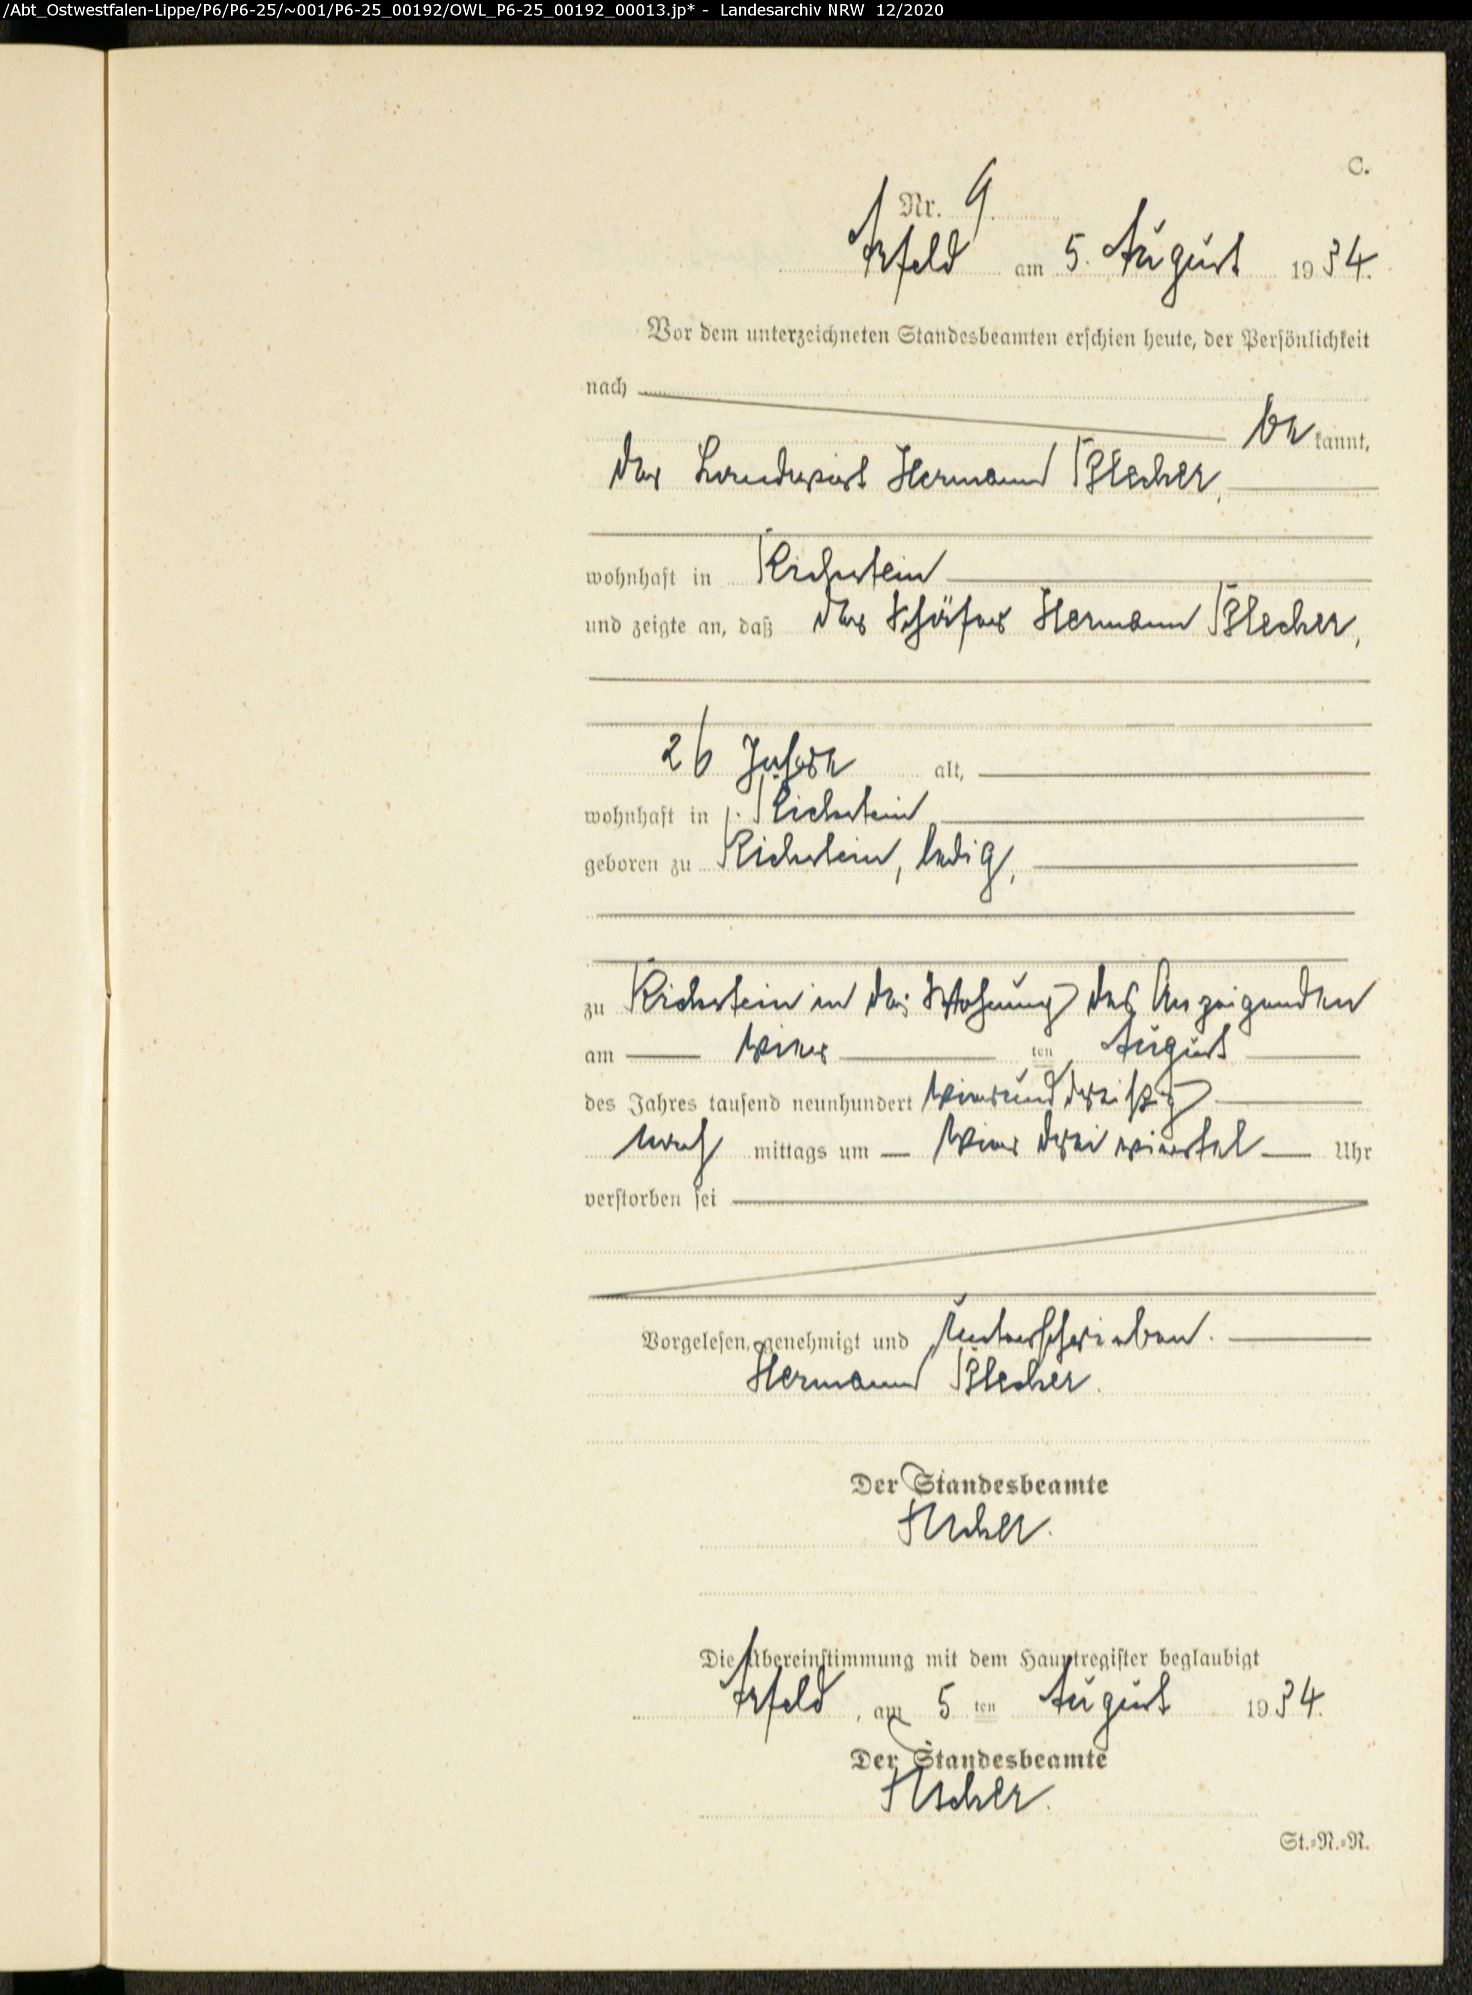 /Abt_Ostwestfalen-Lippe/P6/P6-25/~001/P6-25_00192/OWL_P6-25_00192_00013.jp* - Landesarchiv NRW 12/2020
C.
Nr. 9.
Arfeld am 5. August 1934.
Vor dem unterzeichneten Standesbeamten erschien heute, der Persönlichkeit
nach
be kannt,
der Landwirt Hermann Blecher,
wohnhaft in Richstein
und zeigte an, daß der Schäfer Hermann Blecher,
26 Jahre alt,
wohnhaft in Richstein
geboren zu Richstein, ledig,
zu Richstein in der Wohnung des Anzeigenden
am vier ten August
des Jahres tausend neunhundert vierunddreißig
nach mittags um vier drei viertel Uhr
verstorben sei
Vorgelesen, genehmigt und unterschrieben.
Hermann Blecher.
Der Standesbeamte
Die Übereinstimmung mit dem Hauptregister beglaubigt
Arfeld, am 5 ten August 1934.
Der Standesbeamte
St.=N.=R.